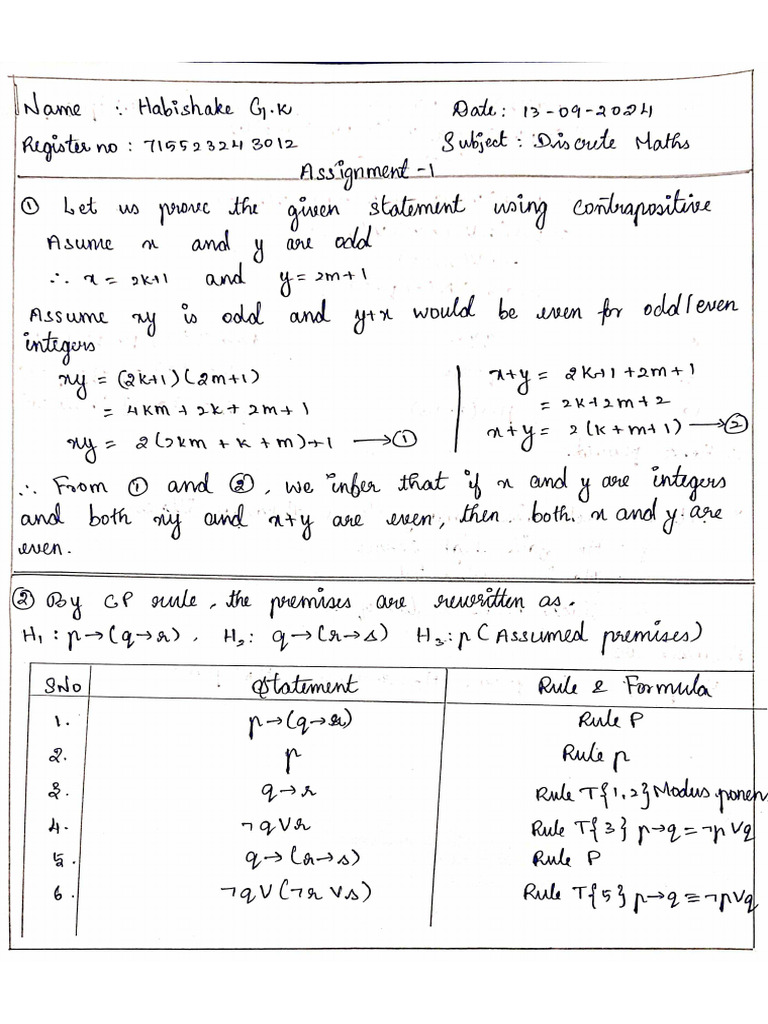 Name : Habishake G.K Date : 13-09-2024
Register no : 715523243012 Subject : Discrete Maths
Assignment -1
① Let us prove the given statement using contrapositive
Asume x and y are odd
∴ x = 2k+1 and y = 2m+1
Assume xy is odd and y+x would be even for odd/even
integers
xy = (2k+1)(2m+1)
= 4km + 2k + 2m + 1
xy = 2(2km + k + m) + 1 → ①
x+y = 2k+1 + 2m+1
= 2k+2m+2
x+y = 2(k+m+1) → ②
∴ From ① and ②, we infer that if x and y are integers
and both xy and x+y are even, then both x and y are
even.
② By CP rule, the premises are rewritten as.
H₁ : p→(q→r) , H₂ : q→(r→s) H₃ : p (Assumed premises)
SNo Statement Rule & Formula
1. p→(q→r) Rule P
2. p Rule p
3. q→r Rule T{1,2} Modus ponen
4. ¬q∨r Rule T{3} p→q=¬p∨q
5. q→(r→s) Rule P
6. ¬q∨(¬r∨s) Rule T{5} p→q≡¬p∨q